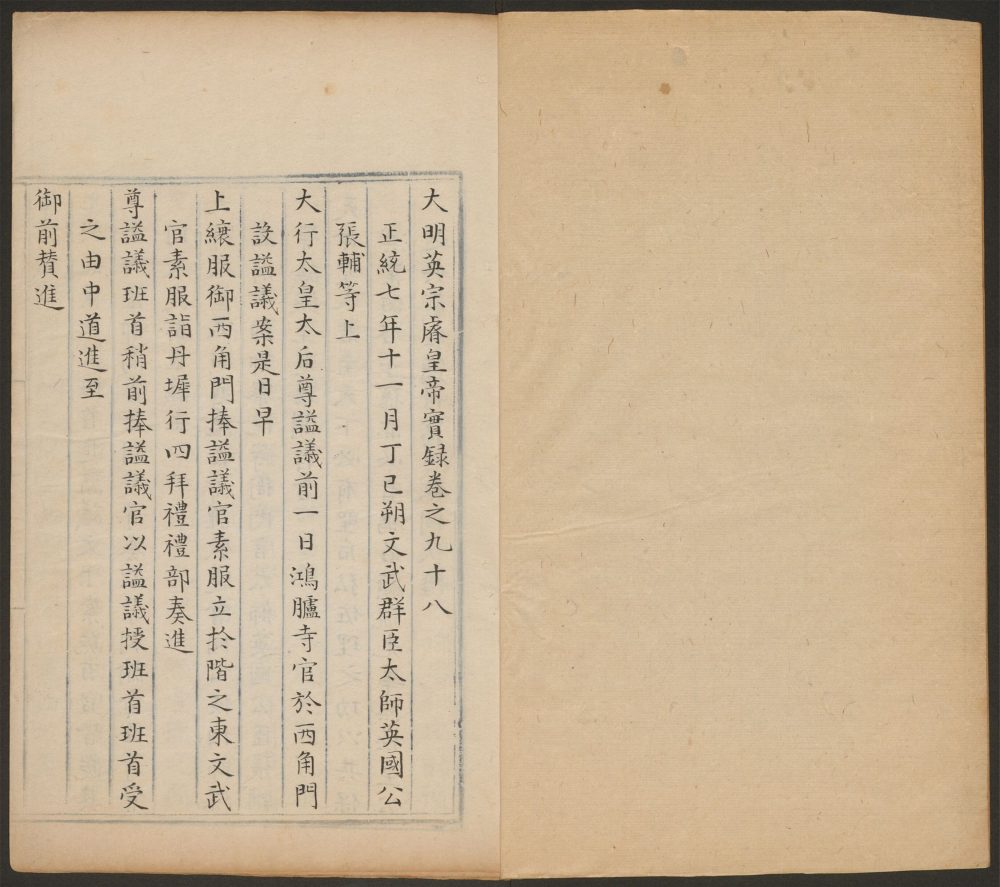 大明英宗睿皇帝實録卷之九十八
正統七年十一月丁巳朔文武群臣太師英國公
張輔等上
大行太皇太后尊謚議前一日鴻臚寺官於西角門
設謚議案是日早
上縗服御西角門捧謚議官素服立於階之東文武
官素服詣丹墀行四拜禮禮部奏進
尊謚議班首稍前捧謚議官以謚議授班首班首受
之由中道進至
御前賛進